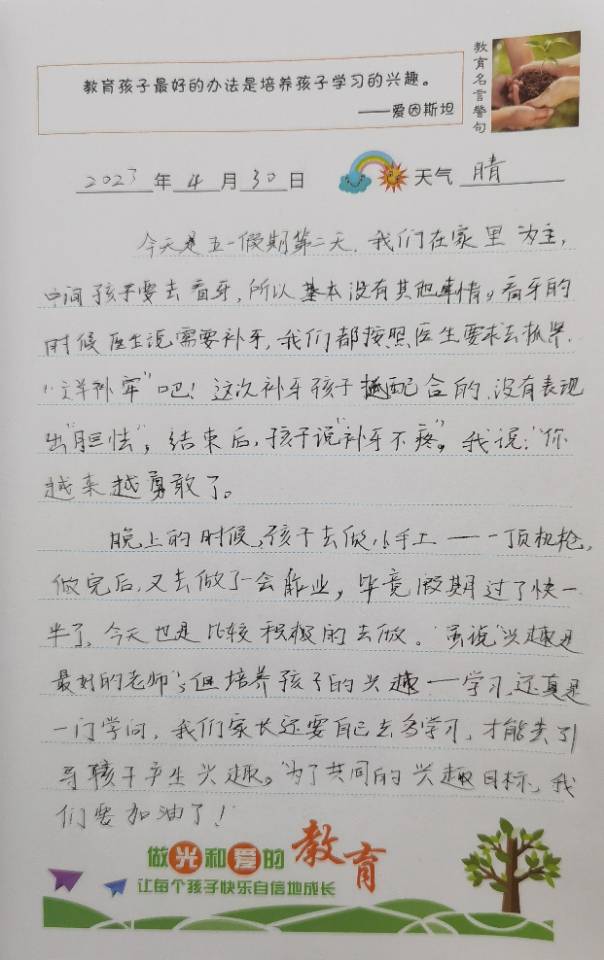 教育孩子最好的办法是培养孩子学习的兴趣。
——爱因斯坦
教育名言警句
2023年4月30日 天气 晴
今天是五一假期第二天,我们在家里为主,
中间孩子要去看牙,所以基本没有其他事情。看牙的
时候医生说需要补牙,我们都按照医生要求去
补牢"吧!这次补牙孩子挺配合的,没有表现
出"胆怯",结束后,孩子说"补牙不疼"。我说:"你
越来越勇敢了。
晚上的时候,孩子去做小手工——一顶机枪,
做完后,又去做了一会作业,毕竟假期过了快一
半了,今天也是比较积极的去做。虽说"兴趣是
最好的老师",但培养孩子的兴趣——学习,还真是
一门学问,我们家长还要自己去多学习,才能去引
导孩子产生兴趣。为了共同的兴趣目标,我
们要加油了!
做光和爱的教育
让每个孩子快乐自信地成长